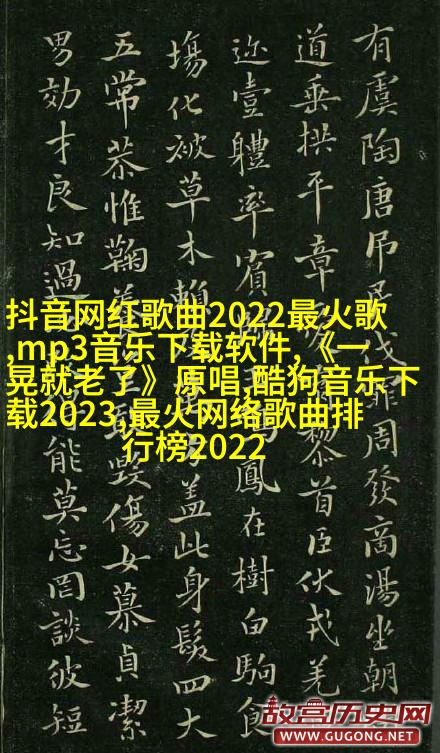 有虞陶唐吊伐罪周發商湯坐朝
道垂拱平章黎首臣伏戎羌
迩壹體率賓鳳在樹白駒食
塲化被草木賴蓋此身髮四大
五常恭惟鞠養毀傷女慕貞潔
男効才良知過能莫忘罔談彼短
抖音网红歌曲2022最火歌
,mp3音乐下载软件,《一
晃就老了》原唱,酷狗音乐下
载2023,最火网络歌曲排
行榜2022
故宫历史网
WWW.GUGONG.NET